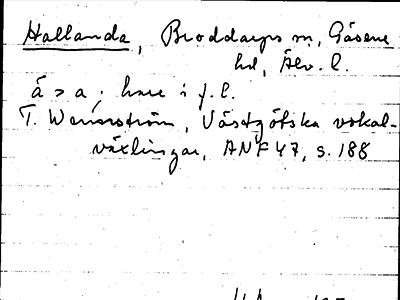 Hallanda, Broddarps sn, Gäsene
hd, Älv. l.
å > a ; hare i f. l.
T. Wennström, Västgötska vokal-
växlingar, ANF 47, s. 188